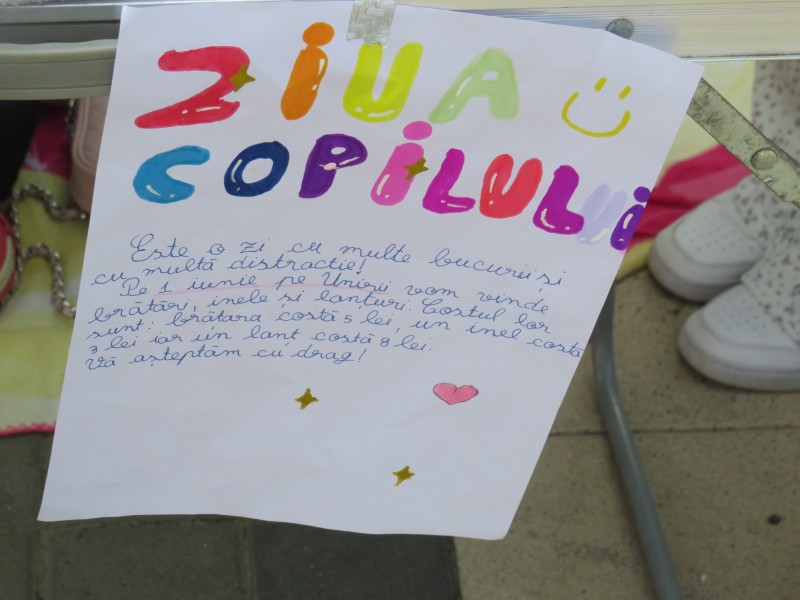 ZIUA
COPILULUI
Este o zi cu multe bucurii și
cu multă distracție!
Pe 1 iunie pe Unirii vom vinde
brățări, inele și lanțuri. Costul lor
sunt: brățara costă 5 lei, un inel costă
3 lei iar un lanț costă 8 lei.
Vă așteptăm cu drag!